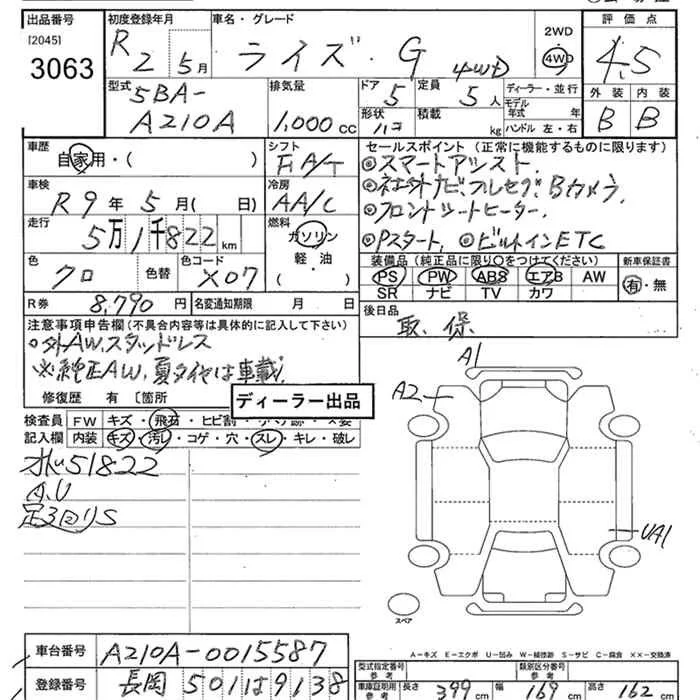 出品番号 初度登録年月 車名・グレード 2WD 評価点
[2045] R2 5月 ライズ・G 4WD 4WD 4.5
3063 型式 排気量 ドア 定員 ディーラー・並行 外装 内装
5BA- 5 5人 モデル年式 年
A210A 1,000cc 形状 積載 kg ハンドル 左・右 B B
ハコ
車歴 シフト セールスポイント (正常に機能するものに限ります)
自家用・( ) FA/T ◎スマートアシスト.
車検 冷房 ◎社外ナビフルセグ.Bカメラ.
R9年 5月( 日) AA/C ◎フロントシートヒーター.
走行 燃料 ◎Pスタート. ◎ビルトインETC
5万1千822km ガソリン 装備品 (純正品に限り○をつけてください) 新車保証書
色 色替 色コード 軽・油 PS PW ABS エアB AW 有・無
クロ X07 ( ) SR ナビ TV カワ
R券 8,790円 名変通知期限 月 日 後日品
取. 保.
注意事項申告欄 (不具合内容等は具体的に記入して下さい)
○外AW.スタッドレス
※純正AW.夏タイヤは車載.
修復歴 有 〔箇所
ディーラー出品
検査員 FW キズ・飛石・ヒビ割
記入欄 内装 キズ・汚レ・コゲ・穴・スレ・キレ・破レ
51822
A.U
足3回りS
A1
A2
UA1
スペア
A-キズ E-エクボ U-凹み W-補修跡 S-サビ C-腐食 ××-交換済
車台番号 A210A-0015587 型式指定番号 参考 類別区分番号 参考
登録番号 長岡 501は9138 車庫証明用 参考 長さ 399cm 幅 169cm 高さ 162cm